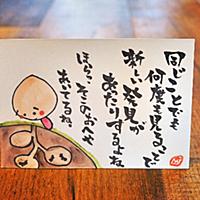 同じことでも
何度も見ることで
新しい発見が
あったりするよね
ほら、そこのおへそ
あいてるね。